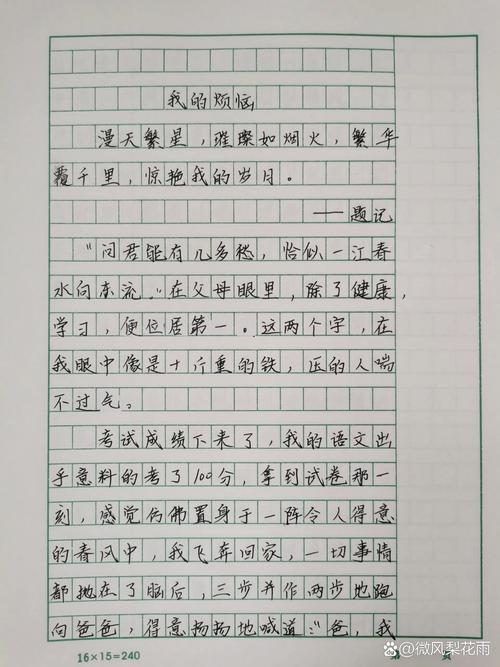 我的烦恼
漫天繁星，璀璨如烟火，繁华
覆千里，惊艳我的岁月。
——题记
“问君能有几多愁，恰似一江春
水向东流。”在父母眼里，除了健康，
学习，便位居第一。这两个字，在
我眼中像是十斤重的铁，压的人喘
不过气。
考试成绩下来了，我的语文出
乎意料的考了100分，拿到试卷那一
刻，感觉仿佛置身于一阵令人得意
的春风中，我飞奔回家，一切事情
都抛在了脑后，三步并作两步地跑
向爸爸，得意扬扬地喊道：“爸，我
16×15=240
页
@微风梨花雨